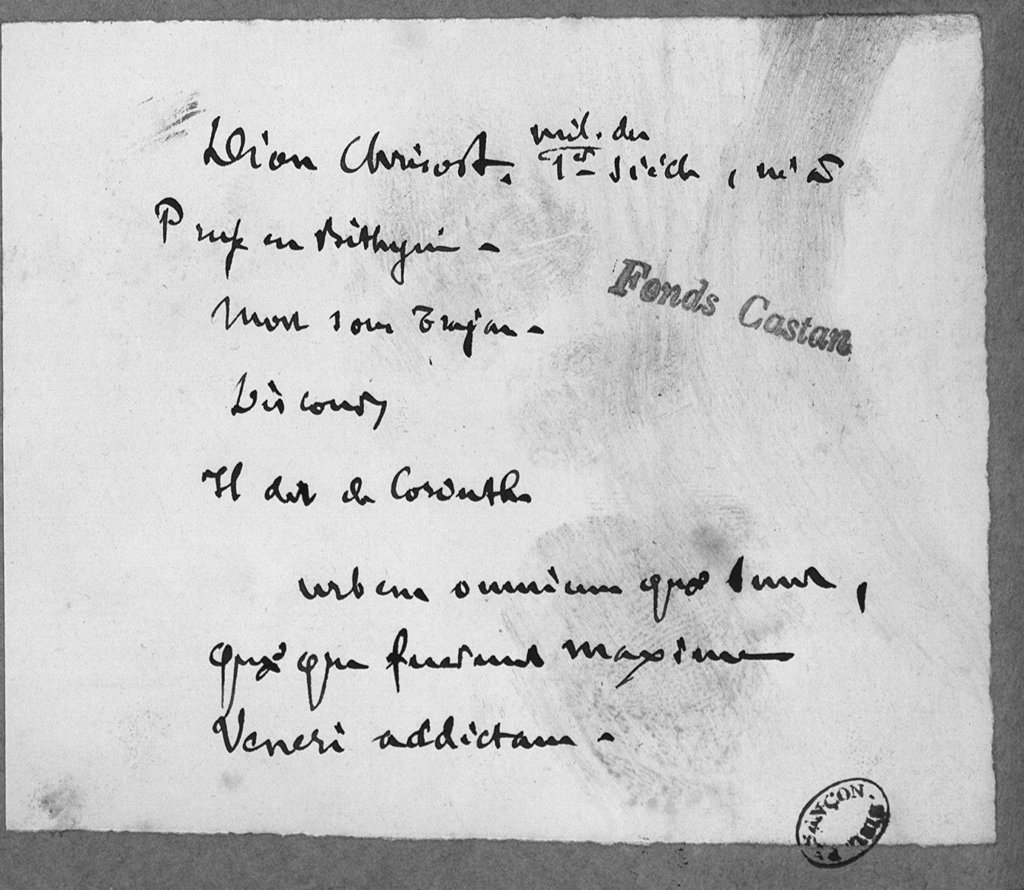 Dion Chrisost. mil. du 1er siècle, né à
Pruse en Bithynie -
Mort sous Trajan -
Discours
Il dit de Corinthe
urbem omnium quæ sunt,
quæque fuerunt maxime
Veneri addictam -
Fonds Castan
BESANÇON BIBL.